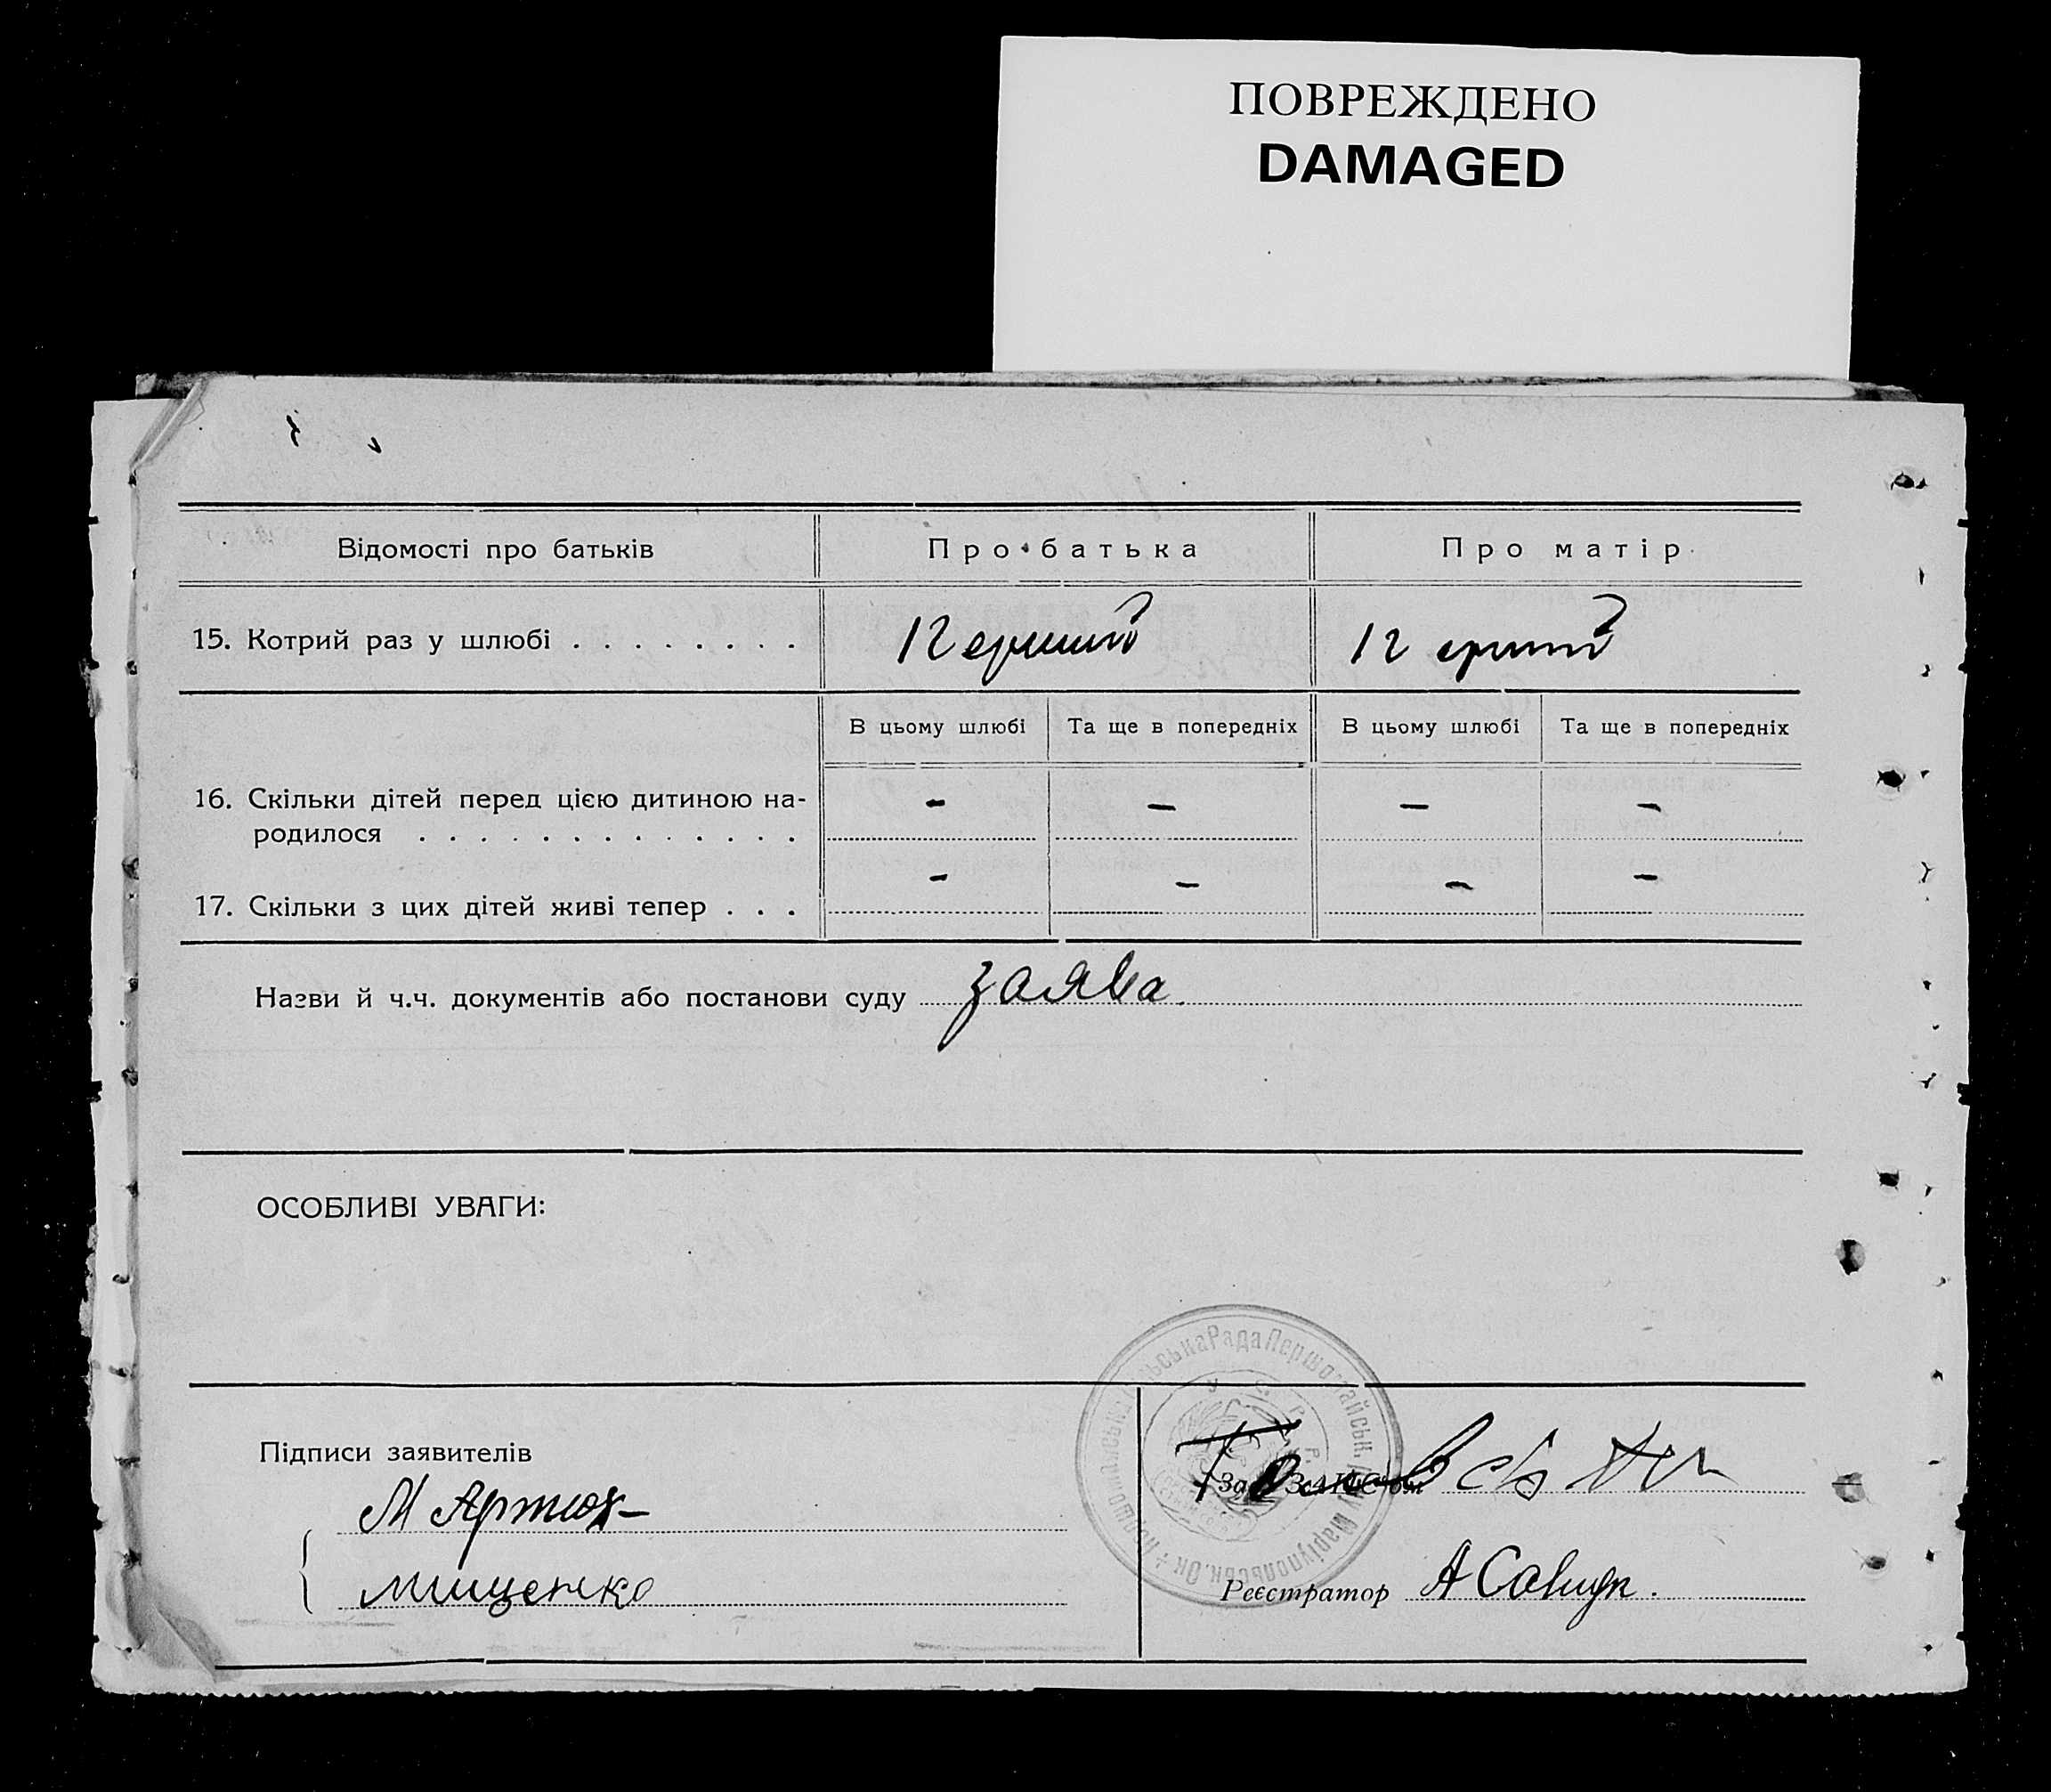 ПОВРЕЖДЕНО
DAMAGED
Відомості про батьків
Про батька
Про матір
15. Котрий раз у шлюбі . . . . . . . .
В цьому шлюбі
Та ще в попередніх
В цьому шлюбі
Та ще в попередніх
16. Скільки дітей перед цією дитиною на-
родилося . . . . . . . . . . . . .
– – – –
17. Скільки з цих дітей живі тепер . . .
– – – –
Назви й ч.ч. документів або постанови суду заява.
ОСОБЛИВІ УВАГИ:
Рада Першотравнева
Маріупольськ. Ок.
У. С. Р. Р.
Підписи заявителів
Зав. ЗАГС'ом
М
Мищенко
Реєстратор А